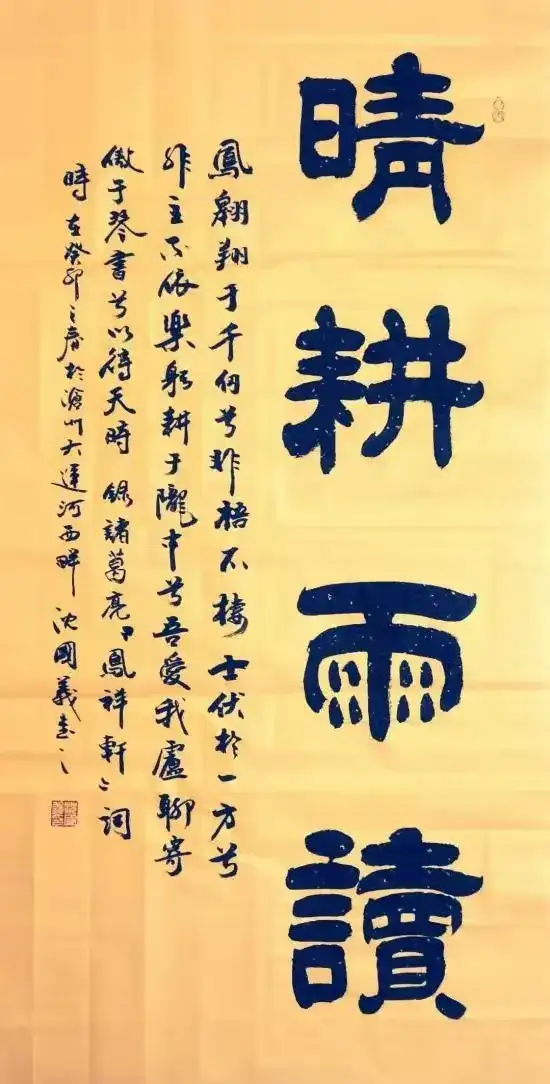 晴耕雨讀
鳳翱翔于千仞兮非梧不棲士伏於一方兮
非主不依樂躬耕于隴中兮吾愛我廬聊寄
傲于琴書兮以待天時 錄諸葛亮鳳祥軒詞
時在癸卯之春於滄州大運河西畔 沈國義書